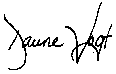 Jaune Vogt